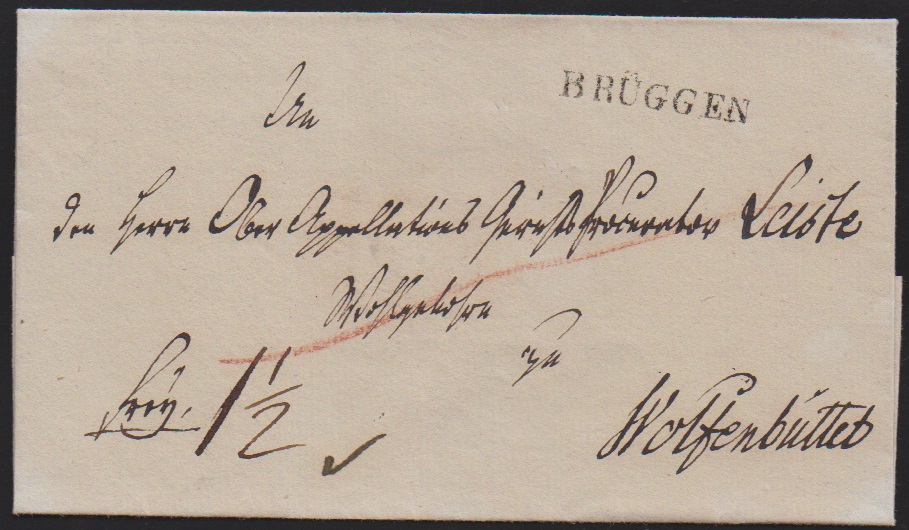 BRÜGGEN
An
den Herrn Ober Appellations Gerichts Procurator Leiste
Wohlgeborn
zu
frey. 1 1/2
Wolfenbüttel